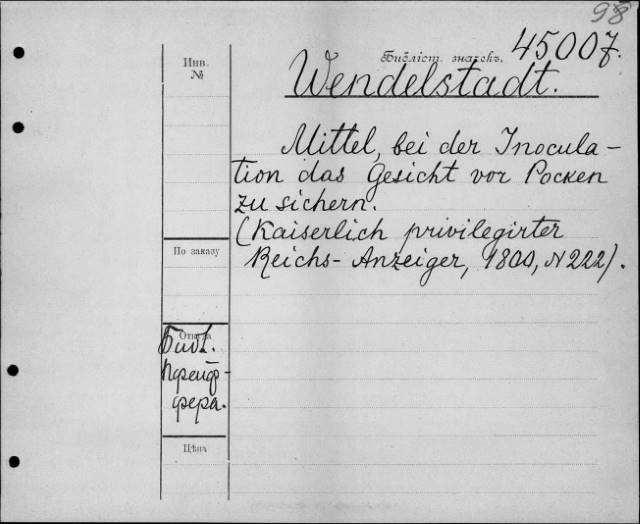 98
45007.
Инв.
№
Библіот. значекъ.
Wendelstadt.
Mittel, bei der Inocula-
tion das Gesicht vor Pocken
zu sichern.
(Kaiserlich privilegirter
Reichs-Anzeiger, 1800, N 222).
По заказу
Откуда
Библ.
Пфейф-
фера.
Цѣна